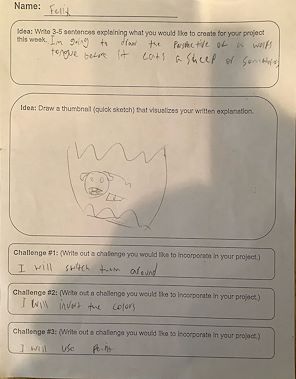 Name: Felix
Idea: Write 3-5 sentences explaining what you would like to create for your project
this week. I'm going to draw the perspective of a wolfs
tongue before it eats a sheep or something
Idea: Draw a thumbnail (quick sketch) that visualizes your written explanation.
Challenge #1: (Write out a challenge you would like to incorporate in your project.)
I will switch them around
Challenge #2: (Write out a challenge you would like to incorporate in your project.)
I will invert the colors
Challenge #3: (Write out a challenge you would like to incorporate in your project.)
I will use